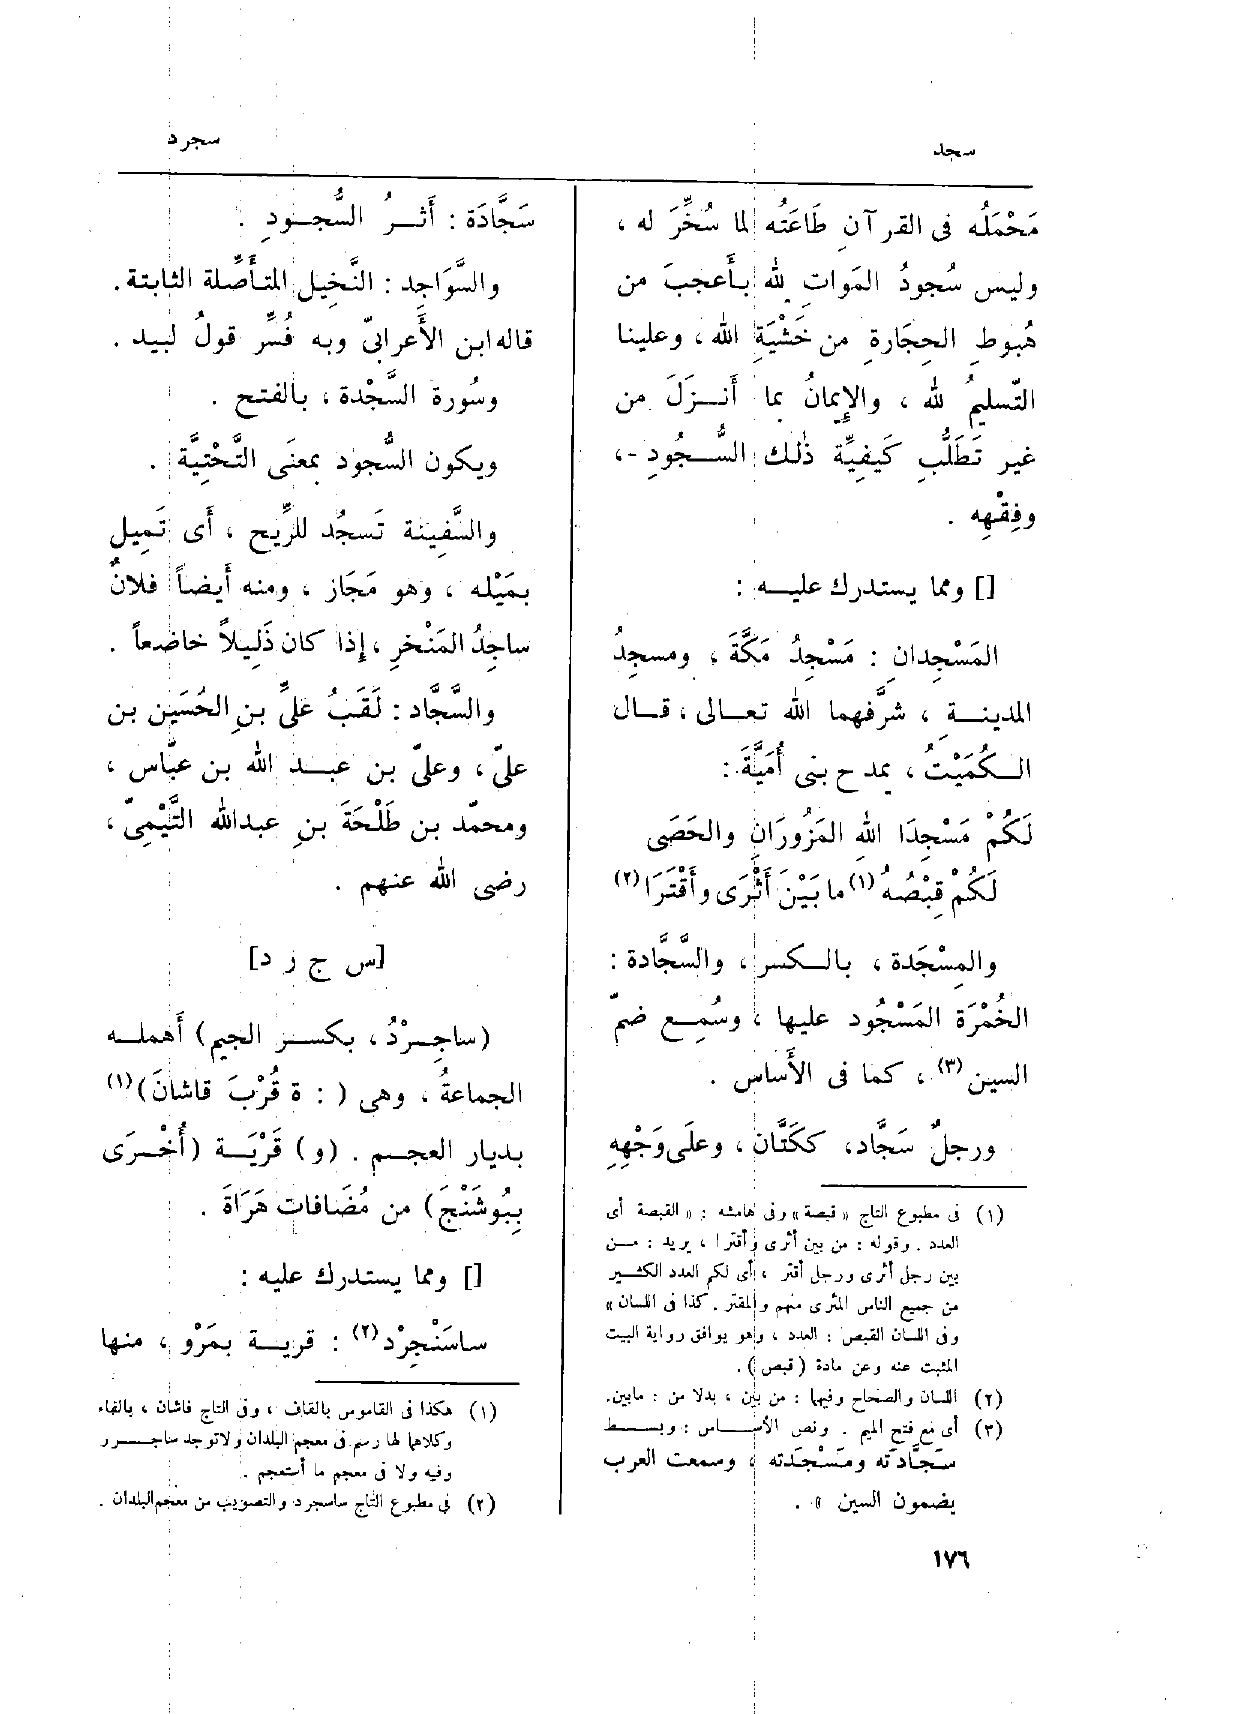 سجد
سجرد
مَحْمَلُه فى القرآنِ طَاعَتُه لما سُخِّرَ له ،
وليس سُجودُ المَوَاتِ لله بأَعجبَ من
هُبوطِ الحِجَارةِ من خَشْيَةِ الله ، وعلينا
التّسليمُ لله ، والإِيمانُ بما أَنــزَلَ من
غير تَطَلُّبِ كَيفِيَّة ذٰلك السُّــجُودِ -،
وفِقْهِه .
[] ومما يستدرك عليــه :
المَسْجِدانِ : مَسْجِدُ مَكَّةَ ، ومسجِدُ
المدينــة ، شرَّفهما الله تعــالى ، قــال
الــكُمَيْتُ ، يمدح بنى أُمَيَّةَ :
لَكُمْ مَسْجِدَا الله المَزُورَانِ والحَصَى
لَكُمْ قِبْصُهُ (١) ما بَيْنَ أَثْرَى وأَقْتَرَا (٢)
والمِسْجَدة ، بالــكسر ، والسَّجَّادة :
الخُمْرَة المَسْجُود عليها ، وسُمِــع ضمّ
السين (٣) ، كما فى الأَساس .
ورجلٌ سَجَّاد، ككَتَّان ، وعلَى وَجْهِهِ
(١) فى مطبوع التاج « قبصة » وفى هامشه : « القبصة أى
العدد . وقوله : من بين أثرى وأقترا ، يريد : مــن
بين رجل أثرى ورجل أقتر ، أى لكم العدد الكثــير
من جميع الناس المثرى منهم والمقتر . كذا فى اللسان »
وفى اللسان القبص : العدد ، وهو يوافق رواية البيت
المثبت عنه وعن مادة ( قبص ) .
(٢) اللسان والصحاح وفيها : من بين ، بدلا من : مابين.
(٣) أى مع فتح الميم . ونص الأســاس : وبســط
سَجَّادَته ومَسْجَدَته ، وسمعت العرب
يضمون السين » .
سَجَّادَة : أَثــرُ السُّجــودِ .
والسَّوَاجِد : النَّخِيل المتأَصِّلة الثابتة.
قاله ابن الأَعرابىّ وبه فُسِّر قولُ لبيد .
وسُورة السَّجْدة ، بالفتح .
ويكون السُّجود بمعنَى التَّحْتِيَّة .
والسَّفِينة تَسجُد للرِّيح ، أَى تَمِيل
بمَيْله ، وهو مَجَاز ، ومنه أَيضاً فلانٌ
ساجِدُ المَنْخرِ ، إِذا كان ذَلِيلاً خاضعاً .
والسَّجَّاد : لَقَبُ علىِّ بنِ الحُسَين بن
علىّ، وعلىّ بن عبــد الله بن عبّاس ،
ومحمّد بن طَلْحَةَ بنِ عبدالله التَّيْمىّ ،
رضى الله عنهم .
[س ج ر د]
(ساجِرْدُ ، بكســر الجيم) أَهملــه
الجماعةُ ، وهى ( : ة قُرْبَ قاشانَ ) (١)
بديار العجــم . (و) قَرْيَــة (أُخْــرَى
بِبُوشَنْجَ) من مُضَافات هَرَاةَ .
[] ومما يستدرك عليه :
ساسَنْجِرْد (٢) : قريــة بمَرْو ، منها
(١) هكذا فى القاموس بالقاف ، وفى التاج فاشان ، بالفاء
وكلاهما لها رسم فى معجم البلدان ولاتوجد ساجــرد
وفيه ولا فى معجم ما أستعجم .
(٢) فى مطبوع التاج ساسجرد والتصويب من معجم البلدان .
١٧٦